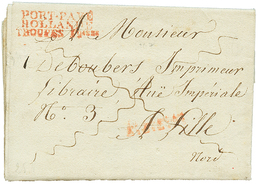 PORT-PAYÉ
HOLLANDE
A Monsieur
Deboubers Imprimeur
Libraire Rue Impériale
N.o 3. A Lille
Nord